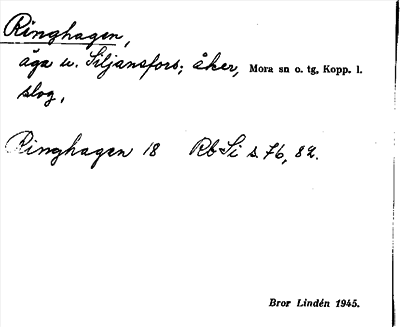 Ringhagen,
äga u. Siljansfors; åker, Mora sn o. tg, Kopp. l.
slog,
Ringhagen 18 Rb Si s. 76, 82.
Bror Lindén 1945.